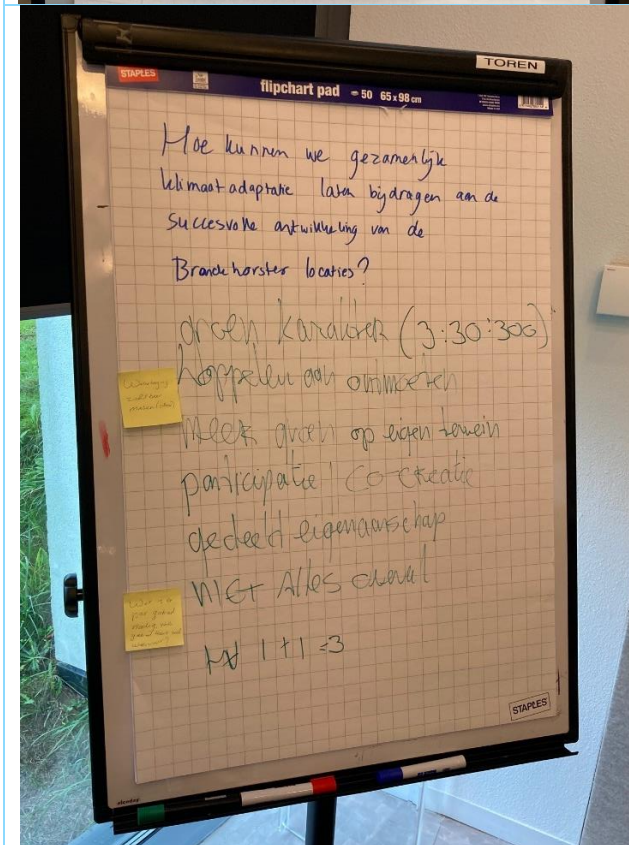 TOREN
STAPLES
flipchart pad 50 65 x 98 cm
Hoe kunnen we gezamenlijk
klimaatadaptatie laten bijdragen aan de
succesvolle ontwikkeling van de
Brandehorster locaties?
groen karakter (3:30:300)
koppelen aan ommeren
meer groen op eigen terrein
participatie / co-creatie
gedeeld eigenaarschap
NIET Alles overal
1 + 1 = 3
Wat is de
STAPLES